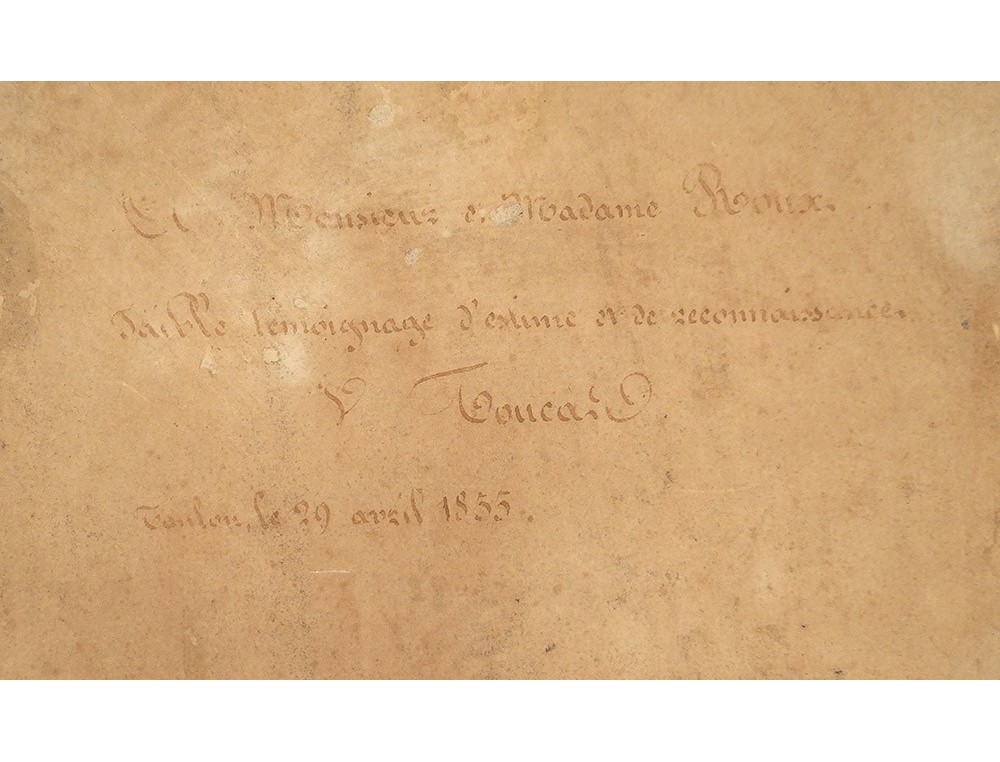 A Monsieur et Madame Roux.
Faible témoignage d'estime et de reconnaissance.
V Toucard
Toulon, le 29 avril 1855.